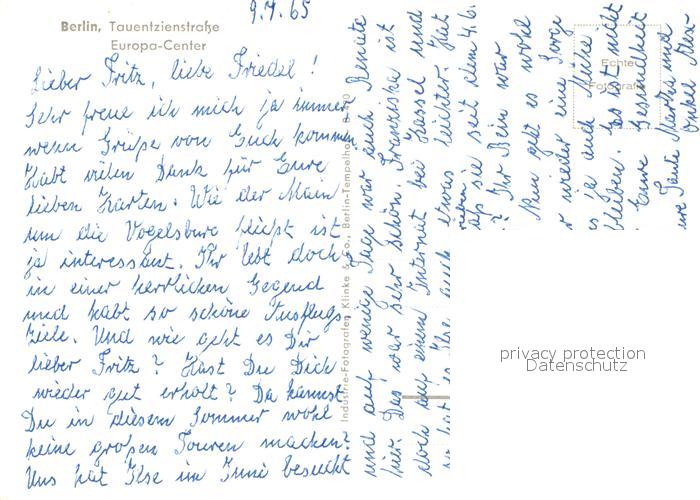 Berlin, Tauentzienstraße
Europa-Center
9.7.65
Lieber Fritz, liebe Friedel!
Sehr freue ich mich ja immer
wenn Grüße von Euch kommen.
Habt vielen Dank für Eure
lieben Karten. Wie der Main
um die Vogelsburg fließt ist
ja interessant. Ihr lebt doch
in einer herrlichen Gegend
und habt so schöne Ausflugs-
ziele. Und wie geht es Dir
lieber Fritz? Hast Du Dich
wieder gut erholt? Da kannst
Du in diesem Sommer wohl
keine großen Touren machen?
Uns hat Ilse im Juni besucht
und auf wenige Tage war auch Renate
hier. Das war sehr schön. Franziska ist
doch auf einem Internat bei Kassel und
hat es Ilse auch etwas leichter. Hat
aß sie seit dem 4.6.
? Ihr Bein war
Nun geht es wohl
r wieder eine Sorge
es ja auch Mühe
bleiben. Es ist nicht
Eure Gesundheit
ure Tante Martha und
Onkel Max
Echte
Fotografie
Industrie-Fotografen Klinke & Co., Berlin-Tempelhof
privacy protection
Datenschutz